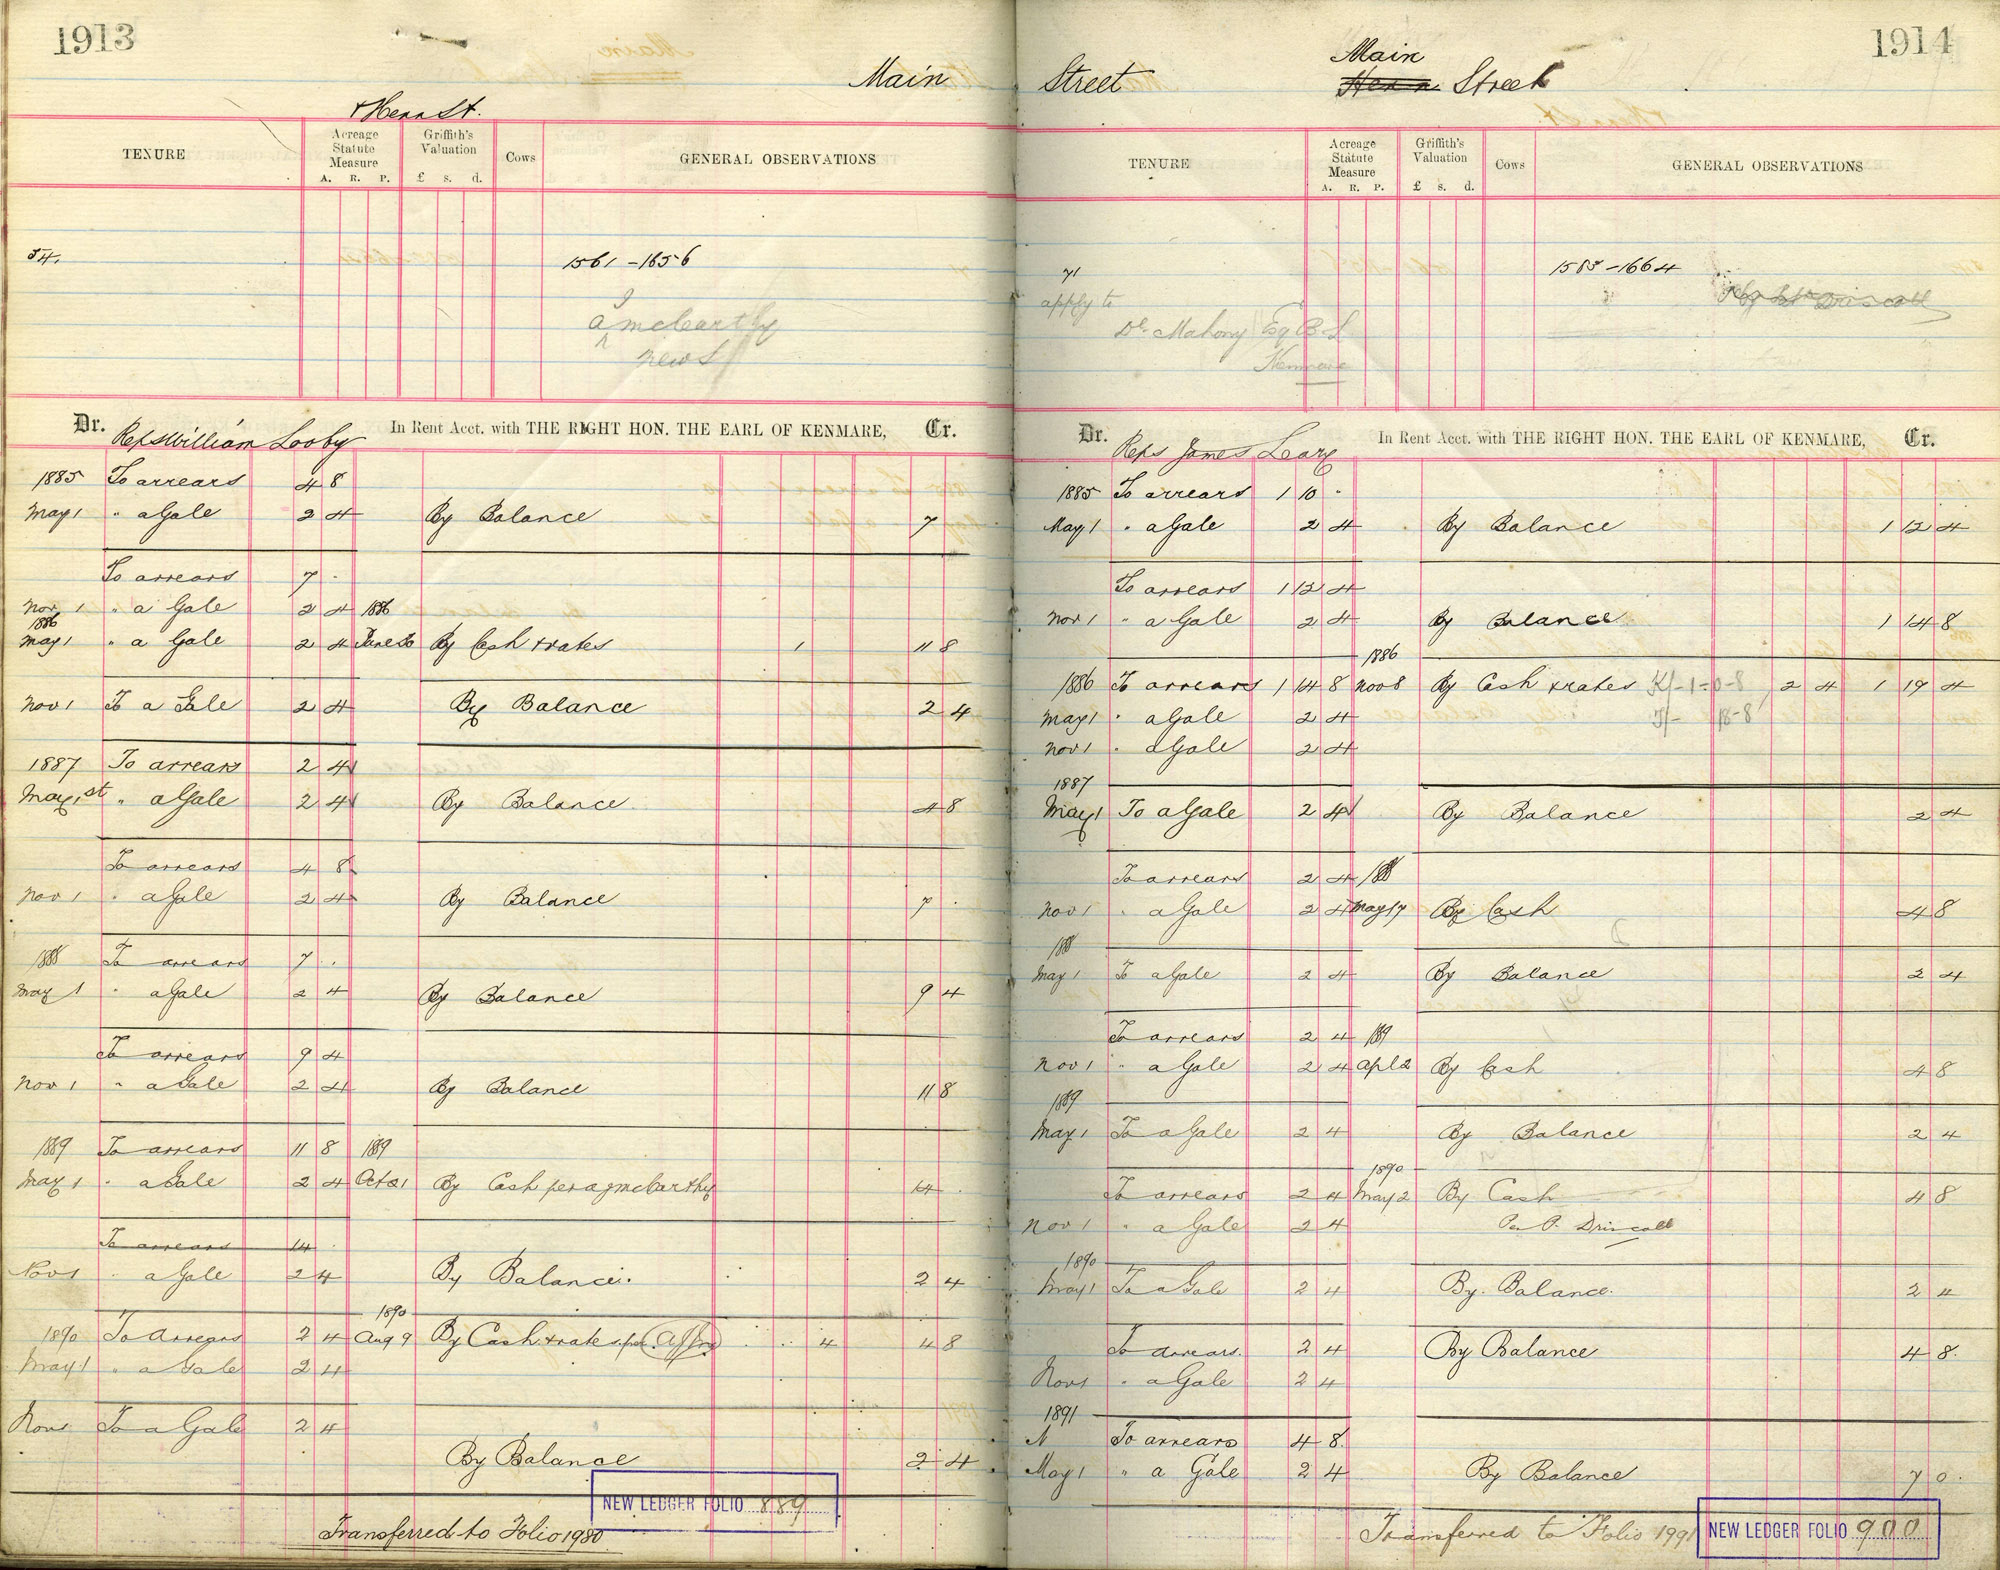 1913
Main
& Henn St.
TENURE
Acreage Statute Measure
A. R. P.
Griffith's Valuation
£ s. d.
Cows
GENERAL OBSERVATIONS
54.
1561 - 1656
A McCarthy
news
Dr. Reps William Looby In Rent Acct. with THE RIGHT HON. THE EARL OF KENMARE, Cr.
1885 To arrears 4 8
May 1 " a Gale 2 4 By Balance 7
To arrears 7 .
Nov 1 " a Gale 2 4 1886
1886
May 1 " a Gale 2 4 June 20 By Cash & rates 1 11 8
Nov 1 To a Gale 2 4 By Balance 2 4
1887 To arrears 2 4
May 1st " a Gale 2 4 By Balance 4 8
To arrears 4 8
Nov 1 " a Gale 2 4 By Balance 7 .
1888 To arrears 7 .
May 1 " a Gale 2 4 By Balance 9 4
To arrears 9 4
Nov 1 " a Gale 2 4 By Balance 11 8
1889 To arrears 11 8 1889
May 1 " a Gale 2 4 Oct 21 By Cash per A J McCarthy 14 .
To arrears 14 .
Nov 1 " a Gale 2 4 By Balance. 2 4
1890
1890 To Arrears 2 4 Aug 9 By Cash & rates per 4 4 8
May 1 " a Gale 2 4
Nov 1 To a Gale 2 4
By Balance 2 4
NEW LEDGER FOLIO 889
Transferred to Folio 1980
1914
Street
Main
Henn Street
TENURE
Acreage Statute Measure
A. R. P.
Griffith's Valuation
£ s. d.
Cows
GENERAL OBSERVATIONS
71
1583 - 1664
apply to
Driscoll
Dl. Mahony Esq B.L
Kenmare
Dr. Reps James Leary In Rent Acct. with THE RIGHT HON. THE EARL OF KENMARE, Cr.
1885 To arrears 1 10 .
May 1 " a Gale 2 4 By Balance 1 12 4
To arrears 1 12 4
Nov 1 " a Gale 2 4 By Balance 1 14 8
1886
1886 To arrears 1 14 8 Nov 8 By Cash & rates K/- 1-0-8 2 4 1 19 4
May 1 " a Gale 2 4 T/- 18-8
Nov 1 " a Gale 2 4
1887
May 1 To a Gale 2 4 By Balance 2 4
To arrears 2 4 1888
Nov 1 " a Gale 2 4 May 17 By Cash 4 8
1888
May 1 To a Gale 2 4 By Balance 2 4
To arrears 2 4 1889
Nov 1 " a Gale 2 4 Apl 2 By Cash 4 8
1889
May 1 To a Gale 2 4 By Balance 2 4
1890
To arrears 2 4 May 2 By Cash 4 8
Nov 1 " a Gale 2 4 Per P. Driscoll
1890
May 1 To a Gale 2 4 By Balance. 2 4
To arrears. 2 4 By Balance 4 8.
Nov 1 " a Gale 2 4
1891
N To arrears 4 8.
May 1 " a Gale 2 4 By Balance 7 0.
Transferred to Folio 1991
NEW LEDGER FOLIO 900